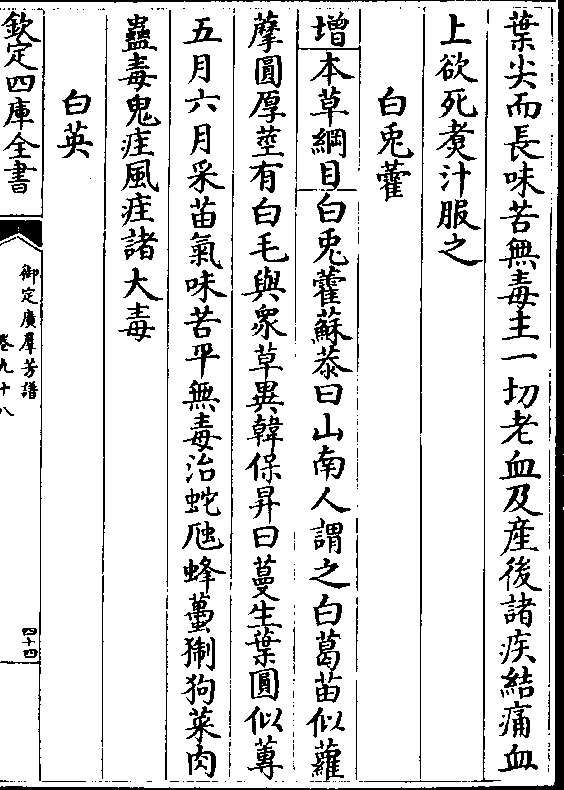 葉尖而長味苦無毒主一切老血及産後諸疾結痛血
上欲死煑汁服之
白兎藿
增本草綱目白兎藿蘇恭曰山南人謂之白葛苗似蘿
藦圓厚莖有白毛與衆草異韓保昇曰蔓生葉圓似蓴
五月六月采苗氣味苦平無毒治蛇虺蜂蠆猘狗菜肉
蠱毒鬼疰風疰諸大毒
白英
欽定四庫全書
御定廣羣芳譜
卷九十八
四十四